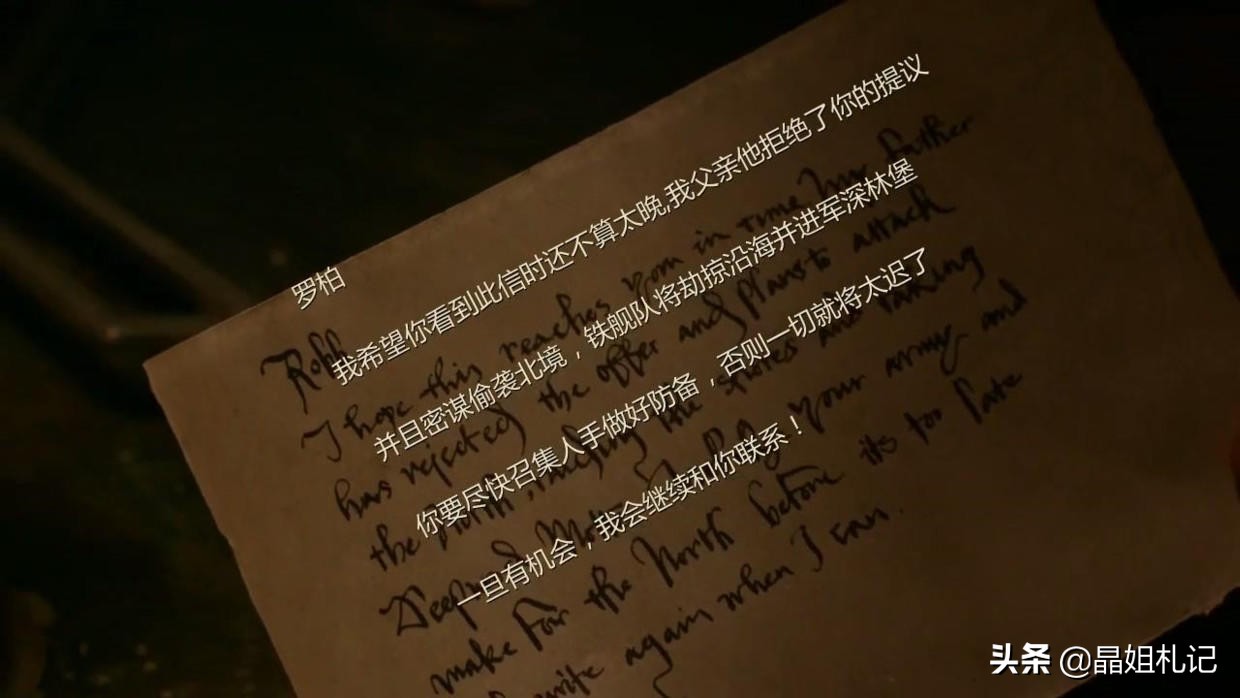 罗柏
我希望你看到此信时还不算太晚,我父亲他拒绝了你的提议
并且密谋偷袭北境，铁舰队将劫掠沿海并进军深林堡
你要尽快召集人手做好防备，否则一切就将太迟了
一旦有机会，我会继续和你联系！
Robb
I hope this reaches you in time My father
has rejected the offer and plans to attack
the North, the shores and taking
Deepwood your army and
make for the North before its too late
write again when I can.
头条 @晶姐札记